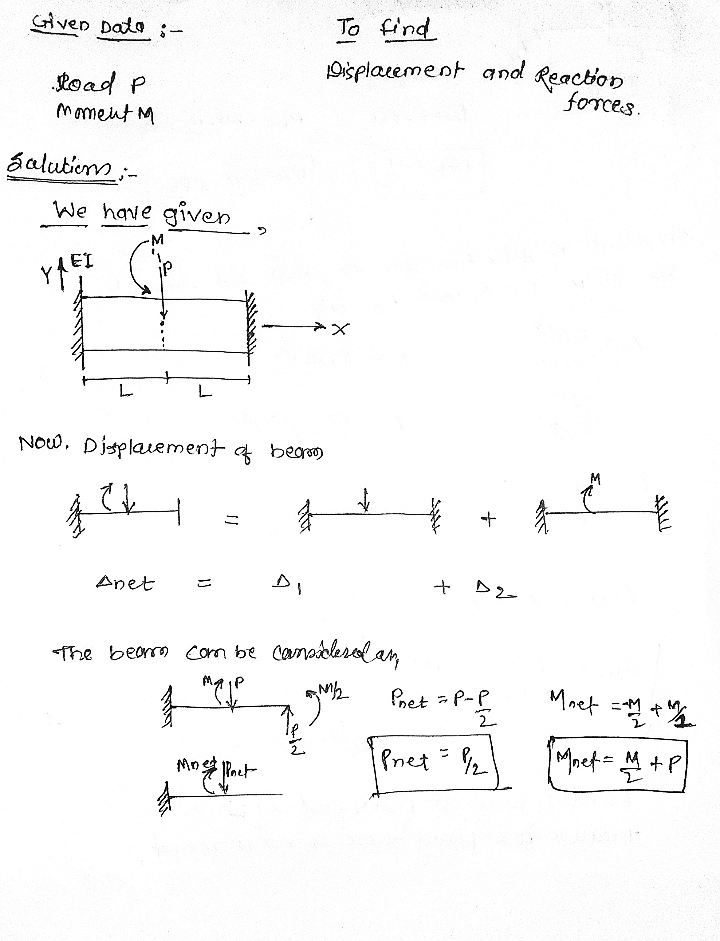 Given Data :-
To find
Load P
Moment M
Displacement and Reaction
forces.
Solution :-
We have given,
M
P
Y
EI
X
L
L
Now, Displacement of beam
M
=
+
Δnet = Δ1 + Δ2
The beam can be considered as,
M P M/2
P/2
Mnet Pnet
Pnet = P - P/2
Pnet = P/2
Mnet = -M/2 + M/1
Mnet = M/2 + P